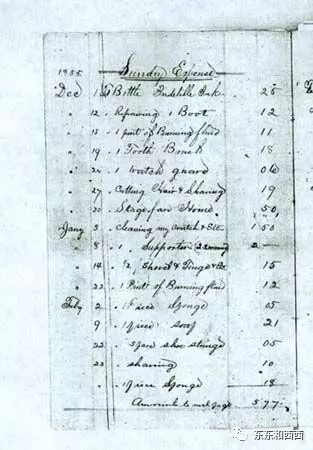 1855 Sundry Expense
Dec 1 Bottle Indelible Ink 25
" 12 " Repairing 1 Boot 12
" 15 " 1 pint of Burning fluid 11
" 19 " 1 Tooth Brush 18
" 24 " 1 Watch guard 06
" 27 " Cutting Hair & Shaving 19
" 30 " Stage fare Home 50
Jany 5 " Cleaning my Watch & Etc 1 50
" 8 " 1 Supporter 2
" 14 " 1/2 Shovel & Tongs & Etc 15
" 22 " 1 Pint of Burning fluid 12
Feby 2 " 1 Piece Sponge 05
9 " 1 piece soap 21
" 22 " 2 pair shoe strings 05
" 23 " shaving 10
" " 1 piece Sponge 18
Amounts to next page 5 77
东东和西西